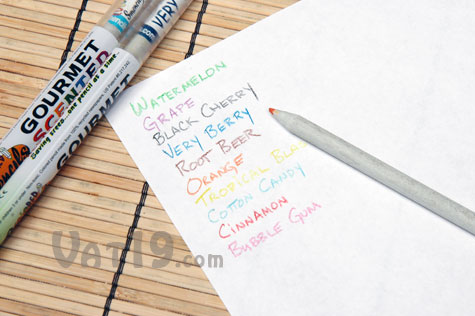 VERY
GOURMET
SCENTED
Saving trees...one pencil at a time.
GOURMET
WATERMELON
GRAPE
BLACK CHERRY
VERY BERRY
ROOT BEER
ORANGE
TROPICAL BLAS
COTTON CANDY
CINNAMON
BUBBLE GUM
VAT19.com